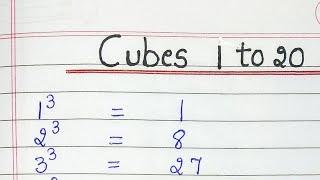 Cubes 1 to 20
1³ = 1
2³ = 8
3³ = 27